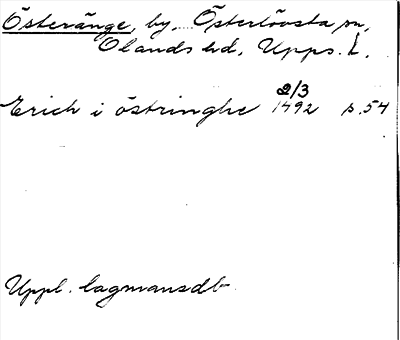 Österänge, by, Österlövsta sn,
Olands hd, Upps. L.
Erich i östringhe 2/3 1492 s. 54
Uppl. lagmansdb